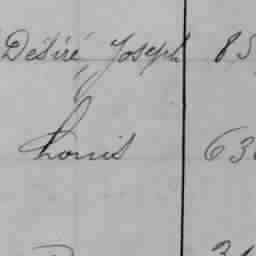 Désiré, Joseph 85
Louis 63